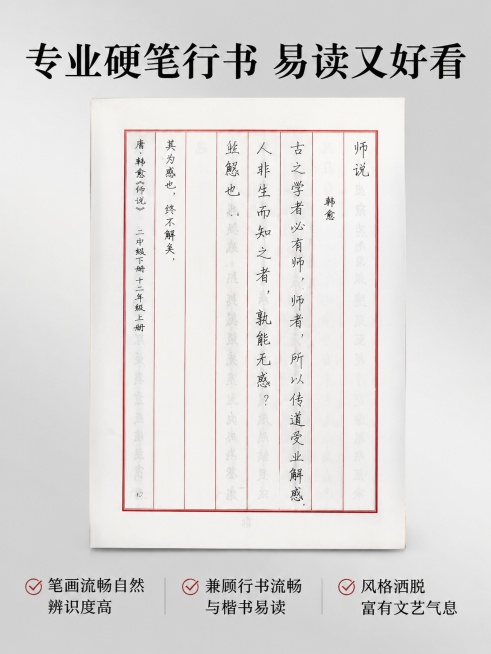 专业硬笔行书 易读又好看
师说
韩愈
古之学者必有师，师者，所以传道受业解惑
人非生而知之者，孰能无惑？
也
其为惑也，终不解矣，
唐·韩愈《师说》 二中级下册十二年级上册
笔画流畅自然
辨识度高
兼顾行书流畅
与楷书易读
风格洒脱
富有文艺气息